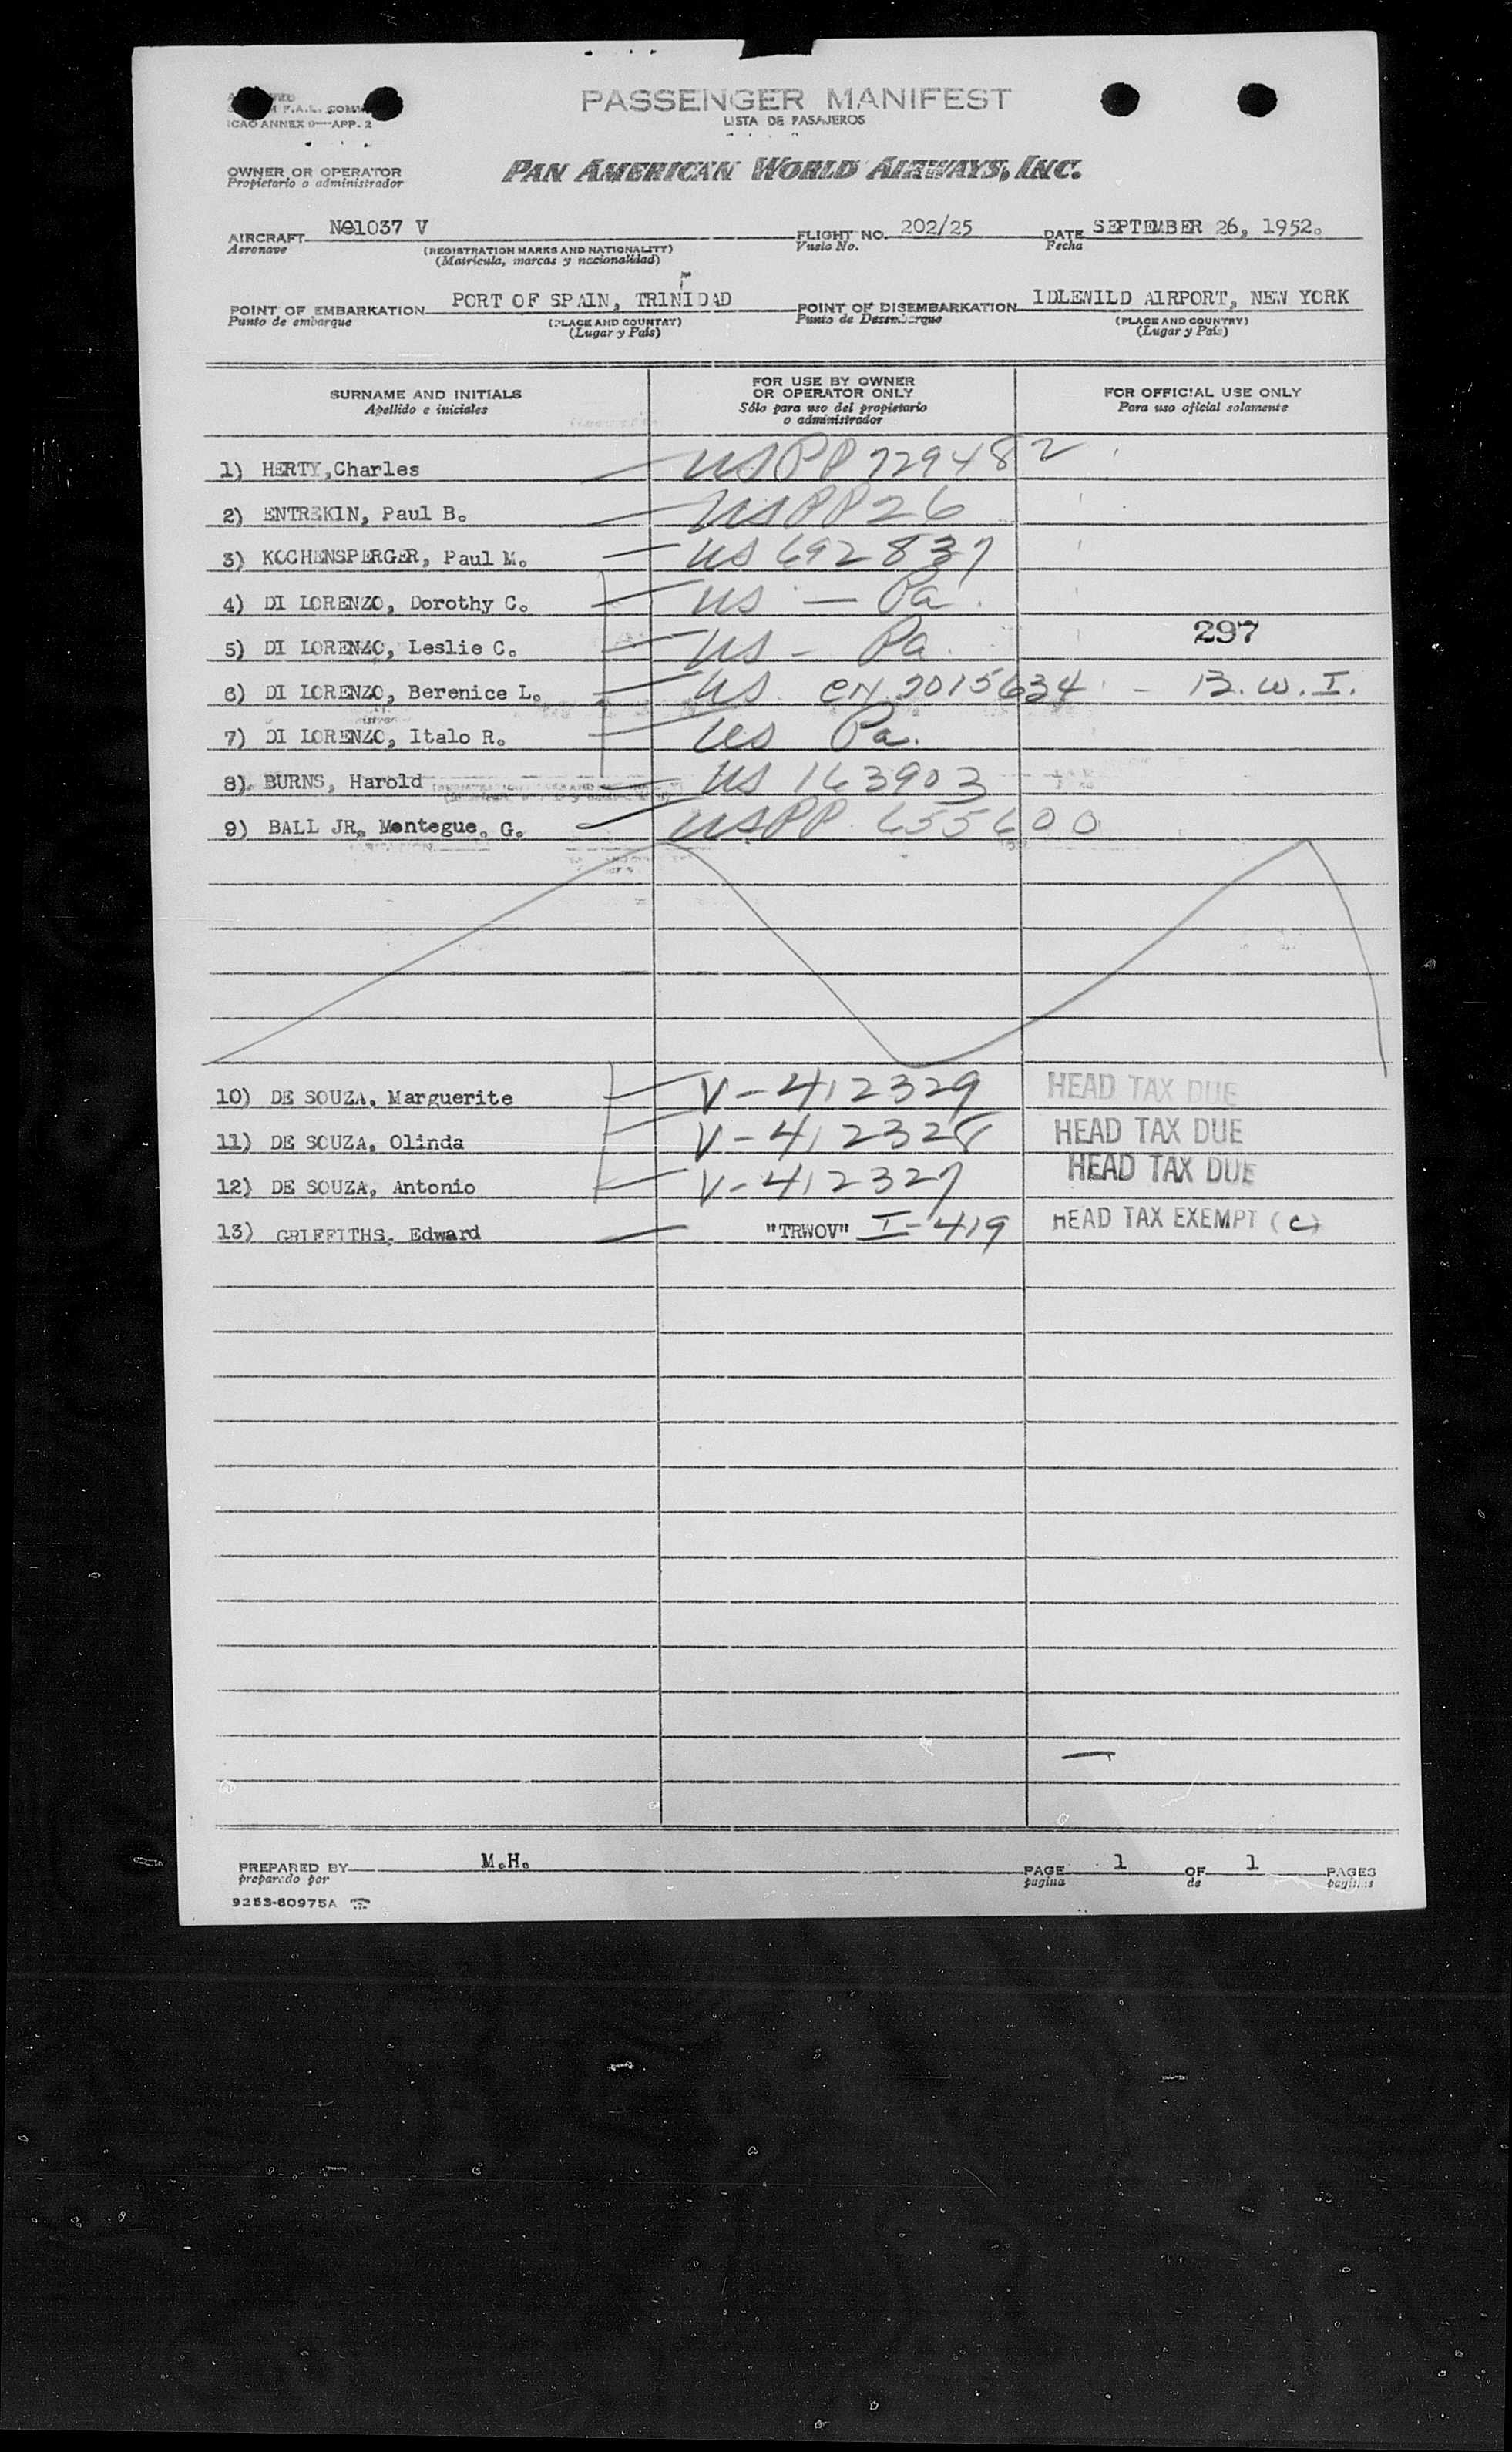 PASSENGER MANIFEST
LISTA DE PASAJEROS
F.A.L. COMM
ICAO ANNEX 9—APP. 2
OWNER OR OPERATOR
Propietario o administrador
PAN AMERICAN WORLD AIRWAYS, INC.
AIRCRAFT N91037 V FLIGHT NO. 202/25 DATE SEPTEMBER 26, 1952.
Aeronave (REGISTRATION MARKS AND NATIONALITY) Vuelo No. Fecha
(Matricula, marcas y nacionalidad)
POINT OF EMBARKATION PORT OF SPAIN, TRINIDAD POINT OF DISEMBARKATION IDLEWILD AIRPORT, NEW YORK
Punto de embarque (PLACE AND COUNTRY) Punto de Desembarque (PLACE AND COUNTRY)
(Lugar y País) (Lugar y País)
SURNAME AND INITIALS FOR USE BY OWNER OR OPERATOR ONLY FOR OFFICIAL USE ONLY
Apellido e iniciales Sólo para uso del propietario o administrador Para uso oficial solamente
1) HERTY,Charles USPP 729482
2) ENTREKIN, Paul B. US PP 26
3) KOCHENSPERGER, Paul M. US 692837
4) DI LORENZO, Dorothy C. US — Pa.
5) DI LORENZO, Leslie C. US - Pa. 297
6) DI LORENZO, Berenice L. US CN 7015634 - B.W.I.
7) DI LORENZO, Italo R. US Pa.
8) BURNS, Harold US 163903
9) BALL JR, Montegue. G. USPP 655600
10) DE SOUZA, Marguerite V-412329 HEAD TAX DUE
11) DE SOUZA, Olinda V-412328 HEAD TAX DUE
12) DE SOUZA, Antonio V-412327 HEAD TAX DUE
13) GRIFFITHS, Edward "TRWOV" I-419 HEAD TAX EXEMPT (c)
PREPARED BY M.H. PAGE 1 OF 1 PAGES
preparado por pagina de paginas
9253-60975A